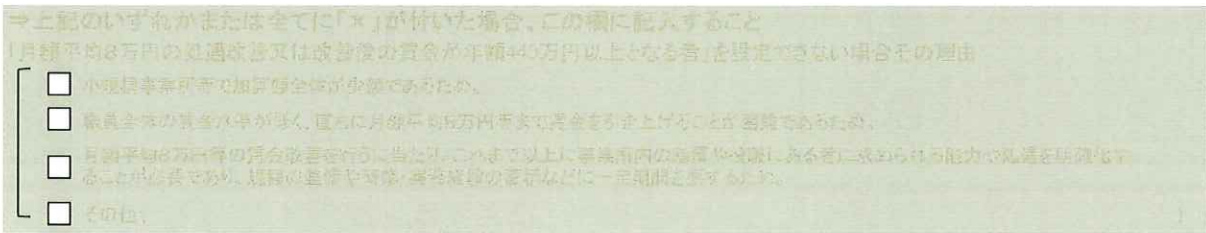 ⇒上記のいずれかまたは全てに「×」が付いた場合、この欄に記入すること
「月額平均8万円の処遇改善又は改善後の賃金が年額440万円以上となる者」を設定できない場合その理由
小規模事業所等で加算額全体が少額であるため。
職員全体の賃金水準が低く、直ちに月額平均8万円等まで賃金を引き上げることが困難であるため。
月額平均8万円等の賃金改善を行うに当たり、これまで以上に事業所内の階層や役職にある者に求められる能力や処遇を明確化す
ることが必要であり、規程の整備や研修・実務経験の蓄積などに一定期間を要するため。
その他(
)